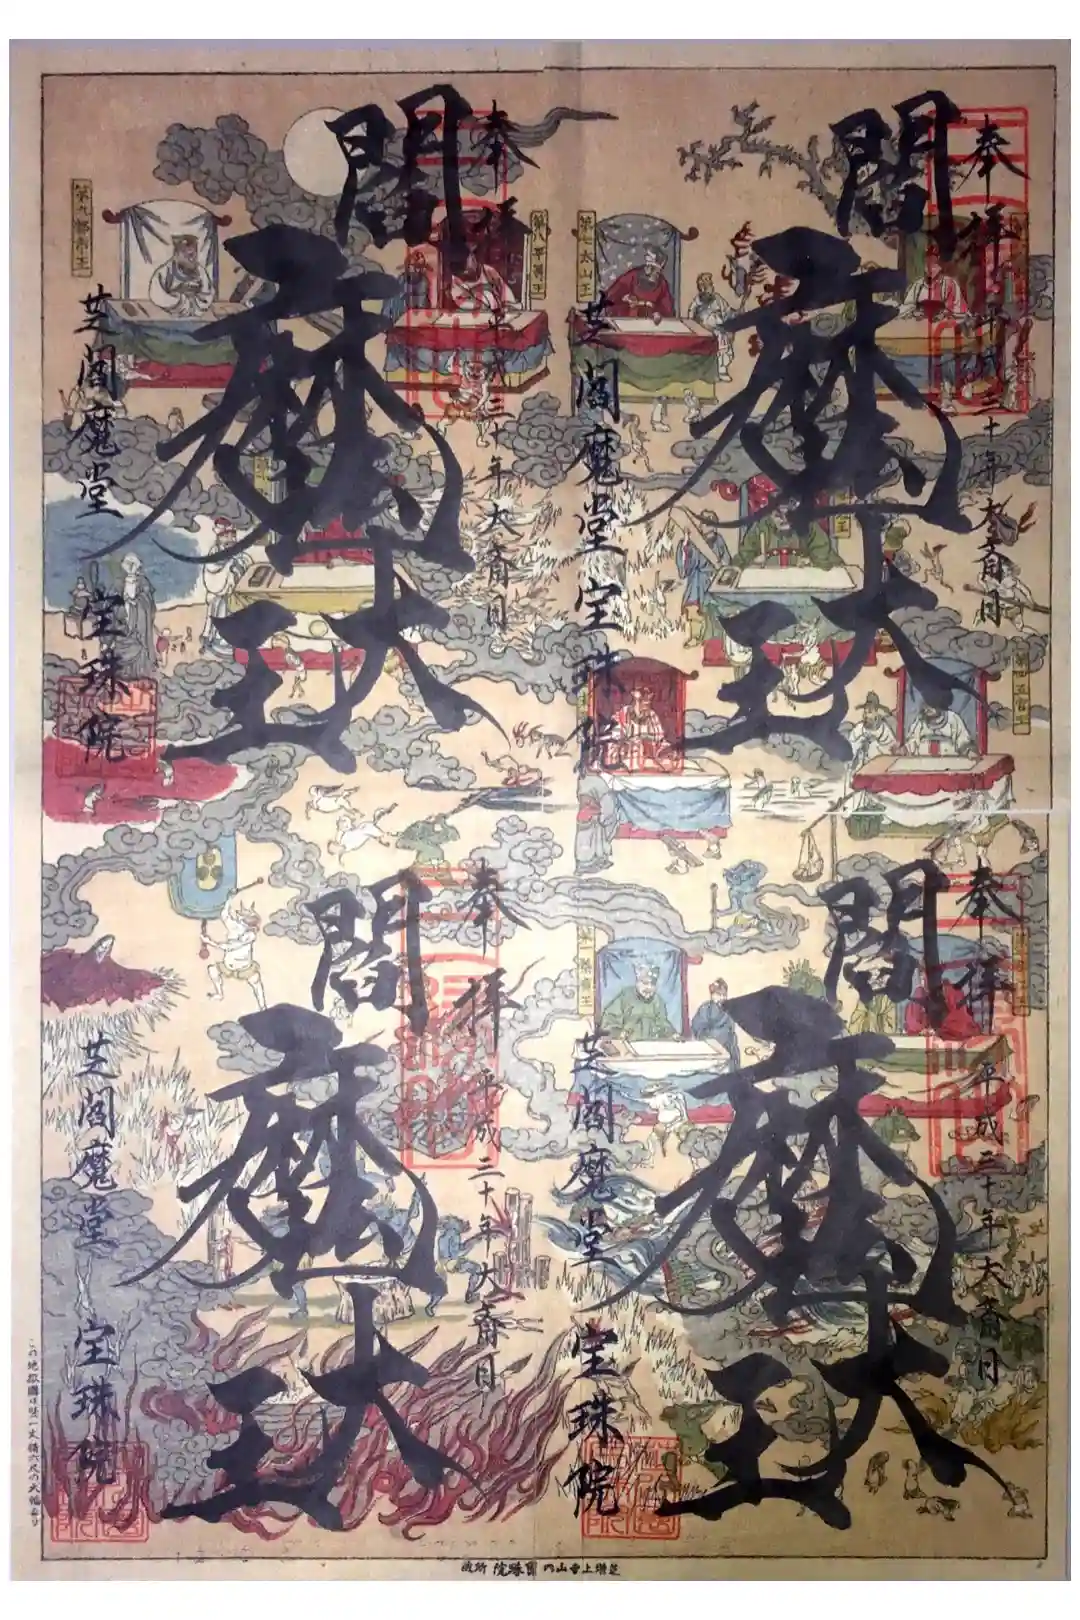 奉拝
平成三十年大斎日
閻魔大王
芝閻魔堂 宝珠院
奉拝
平成三十年大斎日
閻魔大王
芝閻魔堂 宝珠院
奉拝
平成三十年大斎日
閻魔大王
芝閻魔堂 宝珠院
奉拝
平成三十年大斎日
閻魔大王
芝閻魔堂 宝珠院
第九都市王
第八平等王
第七太山王
第四五官王
この地獄圖は竪一丈横六尺の大幅なり
芝増上寺山内 寳珠院 所蔵